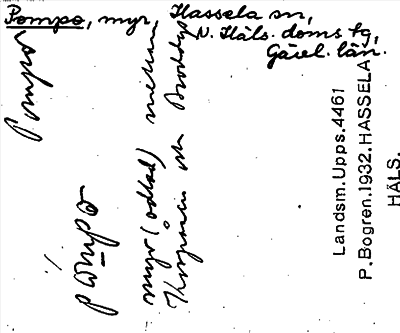 Pompo, myr, Hassela sn,
N. Häls. doms tg,
Gävl. län.
Pompo
pómpo
myr (odlad) mellan
och
Landsm. Upps. 4461
P. Bogren. 1932. HASSELA
HÄLS.